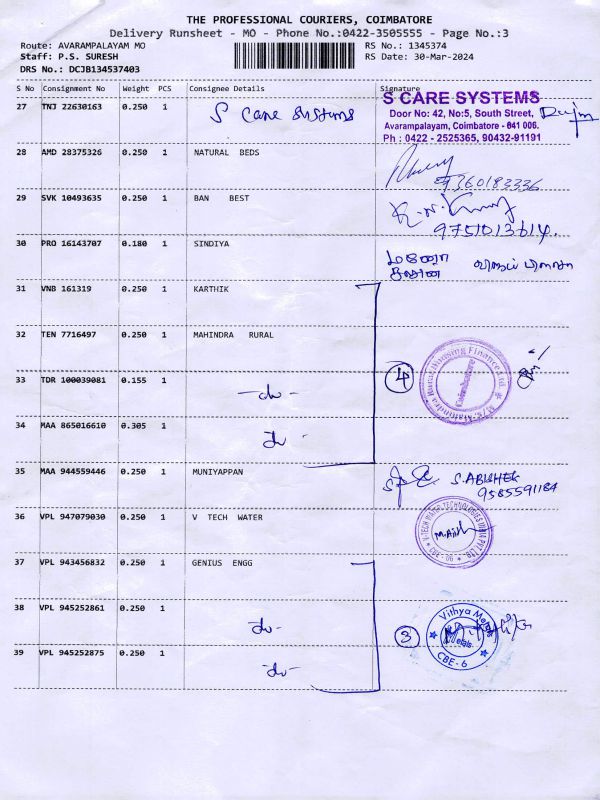 THE PROFESSIONAL COURIERS, COIMBATORE
Delivery Runsheet - MO - Phone No.:0422-3505555 - Page No.:3
Route: AVARAMPALAYAM MO
Staff: P.S. SURESH
DRS No.: DCJB134537403
RS No.: 1345374
RS Date: 30-Mar-2024
S No Consignment No Weight PCS Consignee Details Signature
27 TNJ 22630163 0.250 1 S Care Systems
S CARE SYSTEMS
Door No: 42, No:5, South Street,
Avarampalayam, Coimbatore - 641 006.
Ph : 0422 - 2525365, 90432-91191
28 AMD 28375326 0.250 1 NATURAL BEDS
9360183336
29 SVK 10493635 0.250 1 BAN BEST
9751013614.
30 PRO 16143707 0.180 1 SINDIYA
31 VNB 161319 0.250 1 KARTHIK
32 TEN 7716497 0.250 1 MAHINDRA RURAL
33 TDR 100039081 0.155 1 -do-
4
M/s. Mahindra Rural Housing Finance Ltd
Coimbatore
34 MAA 865016610 0.305 1 do
35 MAA 944559446 0.250 1 MUNIYAPPAN
S.ABISHEK
9585591184
36 VPL 947079030 0.250 1 V TECH WATER
V-TECH WATER TECHNOLOGIES INDIA PVT LTD.
CBE - 06
37 VPL 943456832 0.250 1 GENIUS ENGG
38 VPL 945252861 0.250 1 -do-
3
Vithya Metals
CBE-6
39 VPL 945252875 0.250 1 -do-